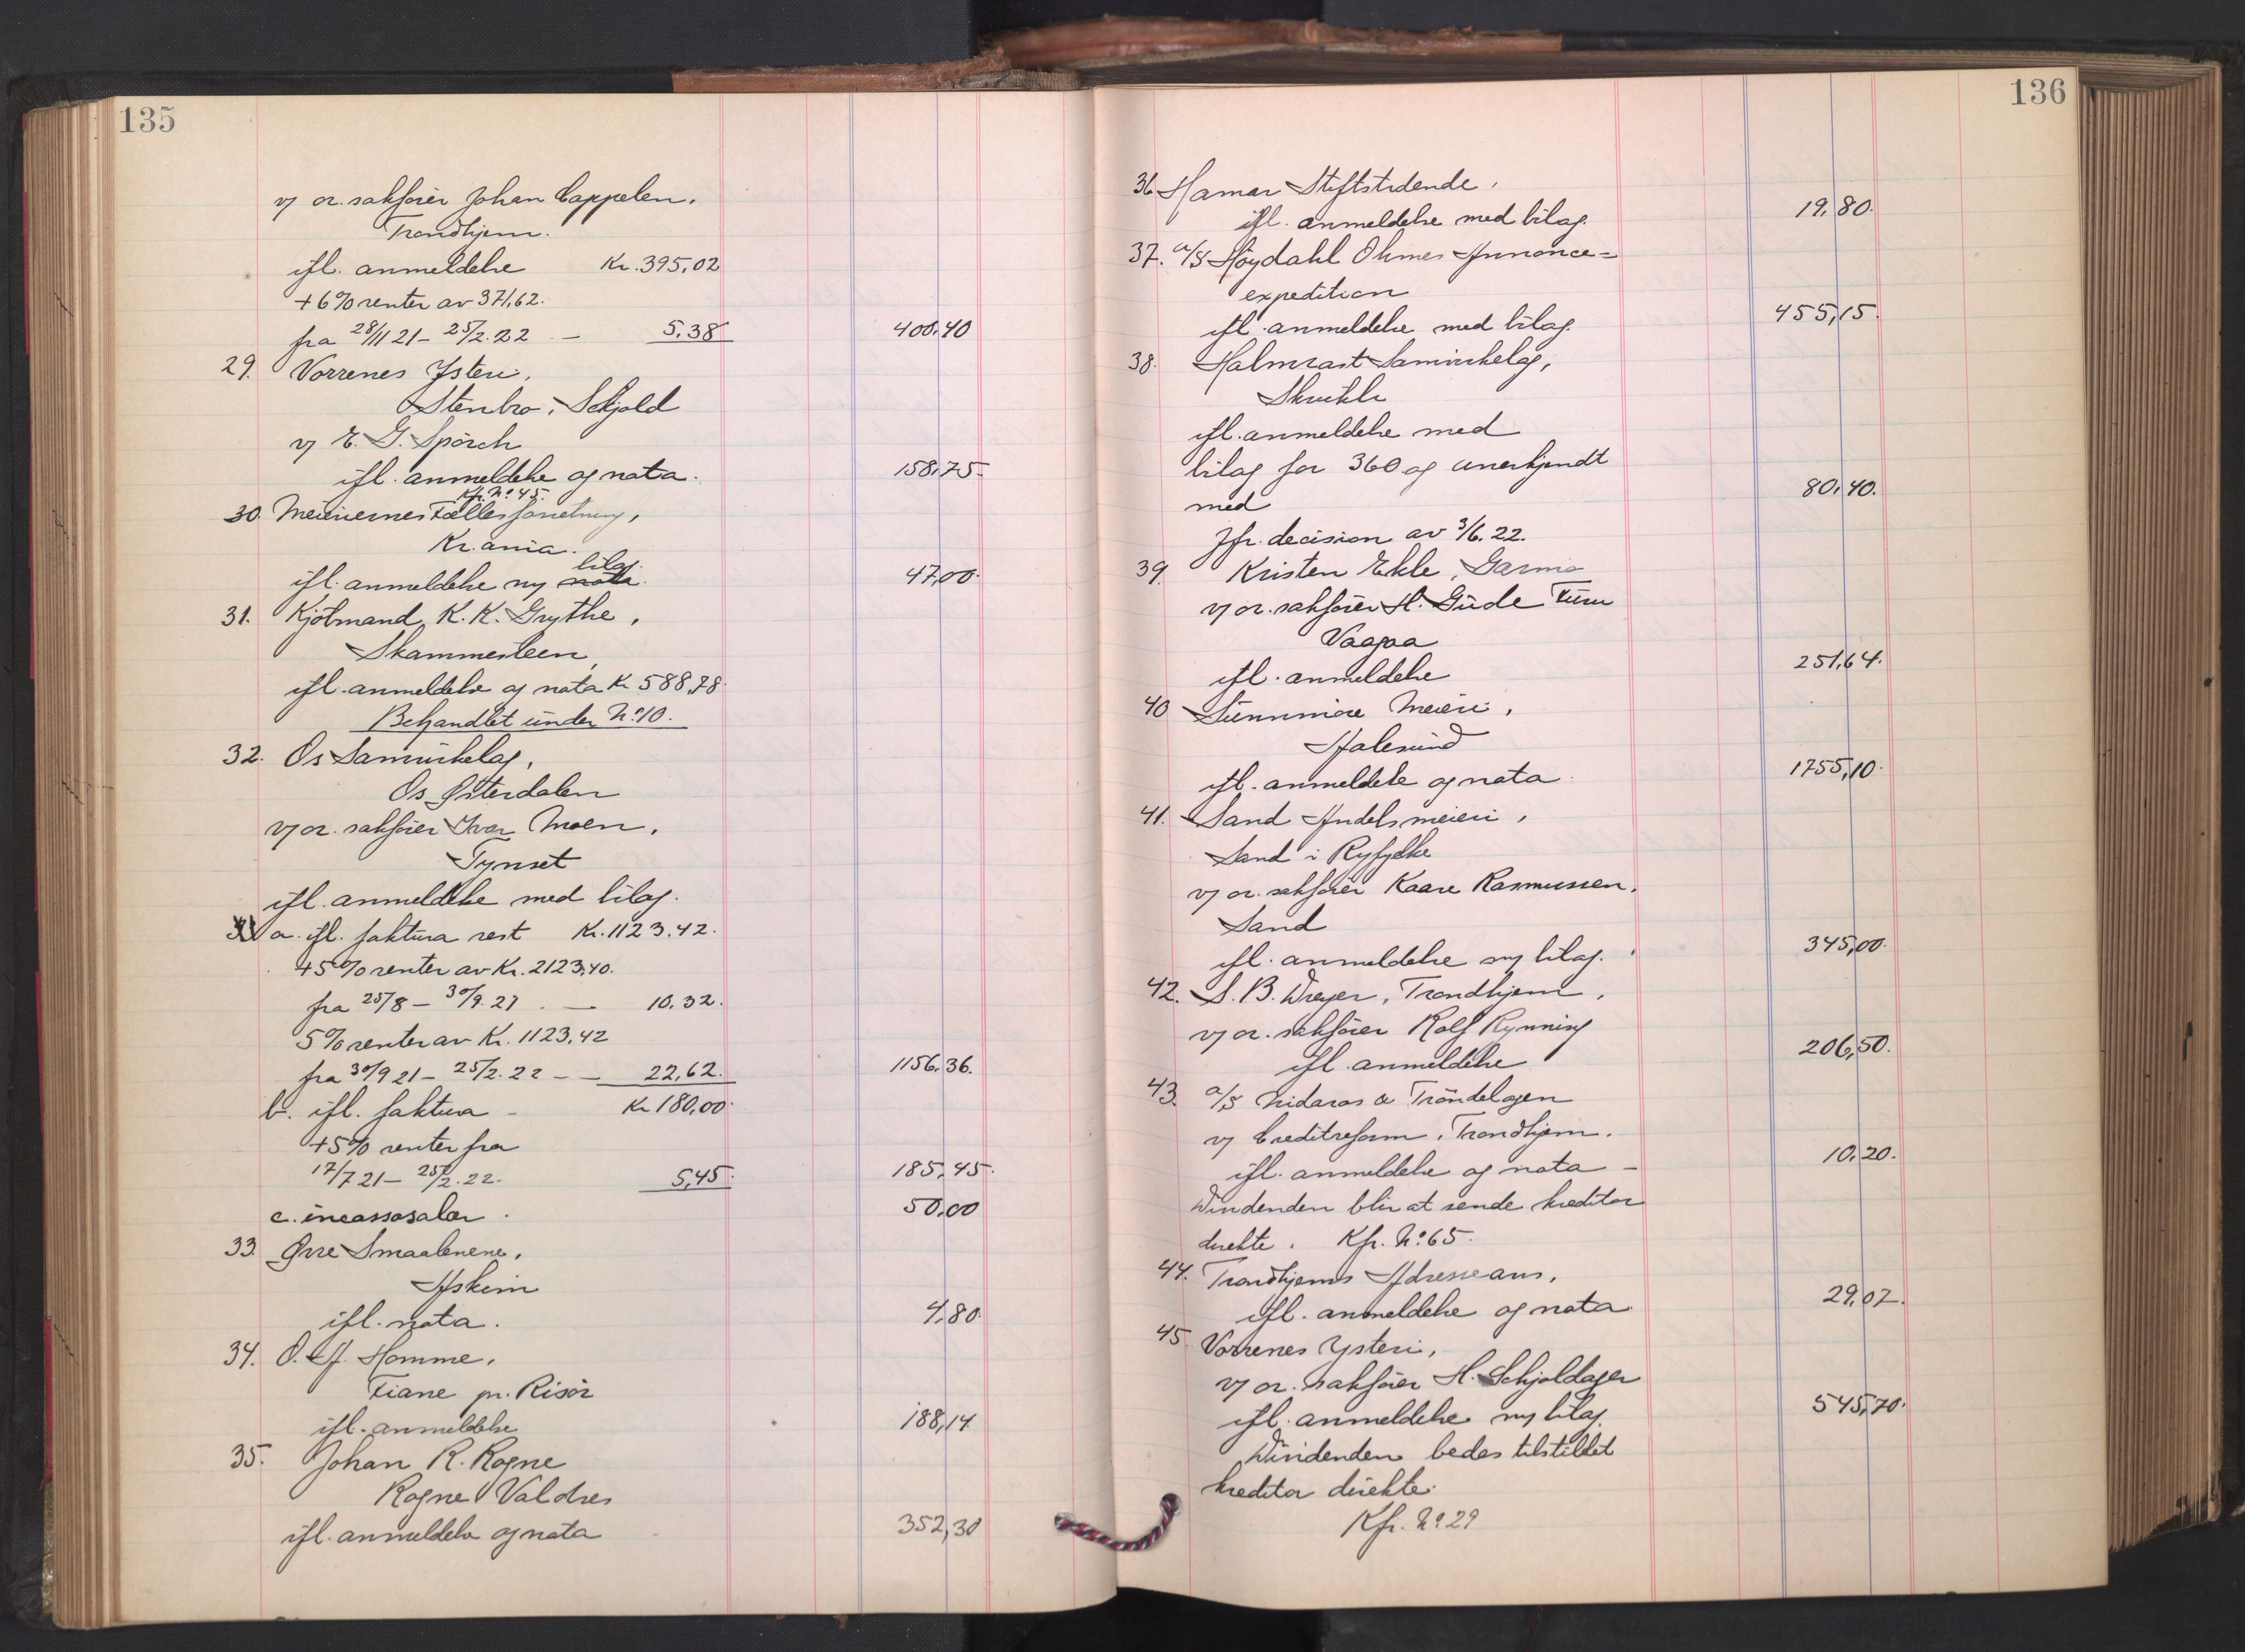 135
v/ or. sakfører Johan Cappelen.
Trondhjem.
ifl. anmeldelse Kr. 395,02
+ 6% renter av 371,62.
fra 28/11 21 – 25/2. 22 – 5,38 400,40
29. Vorrenes Ysteri,
Stenbro, Skjold
v/ E. G. Spörch
ifl. anmeldelse og nota. 158,75
Kfr. No 45.
30. Meieriernes Fællesforretning,
Kr.ania.
bilag.
ifl. anmeldelse m/ nota. 47,00
31. Kjøbmand K. K. Grythe,
Skammesteen,
ifl. anmeldelse og nota Kr 588,78.
Behandlet under No. 10.
32. Os Samvirkelag,
Os Østerdalen
v/ or. sakfører Ivar Moen,
Tynset
ifl. anmeldelse med bilag.
a. ifl. faktura rest Kr. 1123.42.
+ 5% renter av Kr. 2123,40.
fra 25/8 – 30/9. 21 – 10,32.
5% renter av Kr. 1123,42
fra 30/9 21 – 25/2. 22 – – 22,62. 1156,36.
b. ifl. faktura – Kr 180,00.
+ 5% renter fra
17/7 21 – 25/2. 22. 5,45. 185,45.
c. incassosalær. 50,00
33. Øvre Smaalenene,
Askim
ifl. nota. 4,80.
34. O. A. Homme,
Fiane pr. Risör
ifl. anmeldelse 188,14.
35. Johan R. Rogne
Rogne Valdres
ifl. anmeldelse og nota 352,30
136
36 Hamar Stiftstidende,
ifl. anmeldelse med bilag. 19,80.
37. A/S Høydahl Ohmes Annonce=
expedition
ifl. anmeldelse med bilag. 455,15.
38. Halmrast Samvirkelag,
Skrukli
ifl. anmeldelse med
bilag for 360 og anerkjendt
med 80,40.
Jfr. decision av 3/6. 22.
39. Kristen Ekle, Garmo
v/ or. sakfører H. Gude Furu
Vaagaa
ifl. anmeldelse 251,64.
40 Sunnmøre Meieri,
Aalesund
ifl. anmeldelse og nota. 1755,10.
41. Sand Andelsmeieri,
Sand i Ryfylke
v/ or. sakfører Kaare Rasmussen.
Sand
ifl. anmeldelse m/ bilag. 345,00.
42. S. B. Dreyer, Trondhjem,
v/ or. sakfører Rolf Rynning
ifl. anmeldelse 206,50.
43. A/S Nidaros & Tröndelagen
v/ Creditreform, Trondhjem.
ifl. anmeldelse og nota – 10,20.
Dividenden blir at sende kreditor
direkte. Kfr. No. 65.
44. Trondhjems Adresseavis,
ifl. anmeldelse og nota 29,02.
45. Vorrenes Ysteri,
v/ or. sakfører H. Schjoldager
ifl. anmeldelse m/ bilag. 545,70.
Dividenden bedes tilstillet
kreditor direkte.
Kfr. No 29